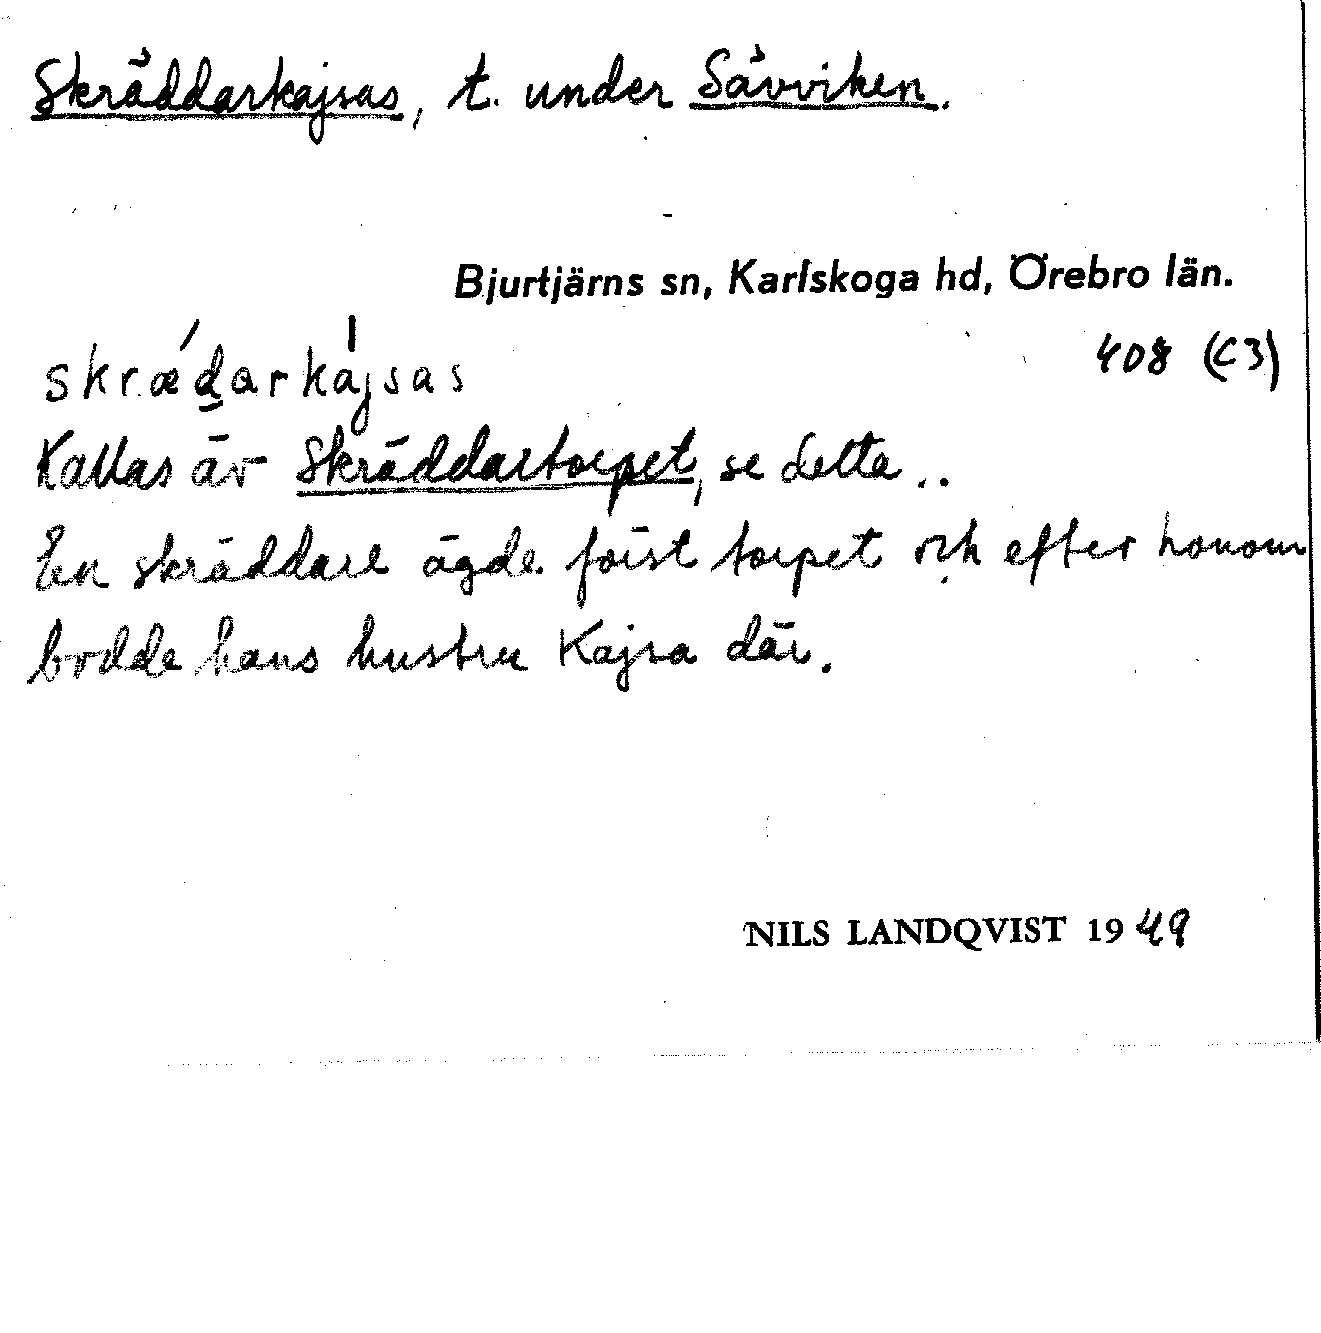 Skräddarkajsas, t. under Sävviken.
Bjurtjärns sn, Karlskoga hd, Örebro län.
408 (C3)
skrædarkajsas
Kallas äv Skräddartorpet, se detta..
En skräddare ägde först torpet och efter honom
bodde hans hustru Kajsa där.
NILS LANDQVIST 1949